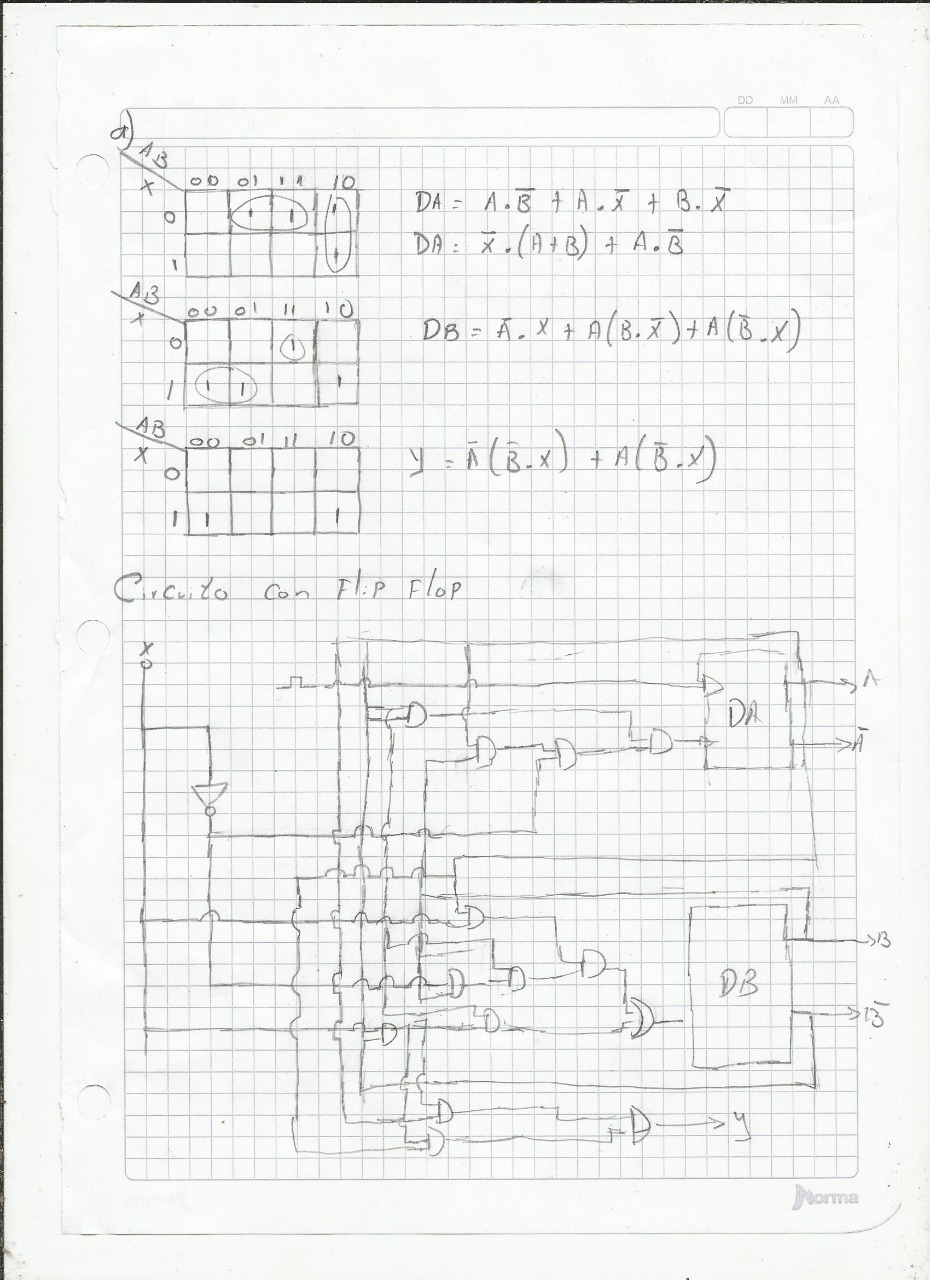 DD MM AA
a)
AB
X
00 01 11 10
0 1 1 1
1 1
DA = A.B̅ + A.X̅ + B.X̅
DA = X̅.(A+B) + A.B̅
AB
X
00 01 11 10
0 1
1 1 1 1
DB = A̅.X + A(B.X̅)+A(B̅.X)
AB
X
00 01 11 10
0
1 1 1
Y = A̅(B̅.X) + A(B̅.X)
Circuito con Flip Flop
X
DA
A
A̅
B
DB
B̅
Y
Norma